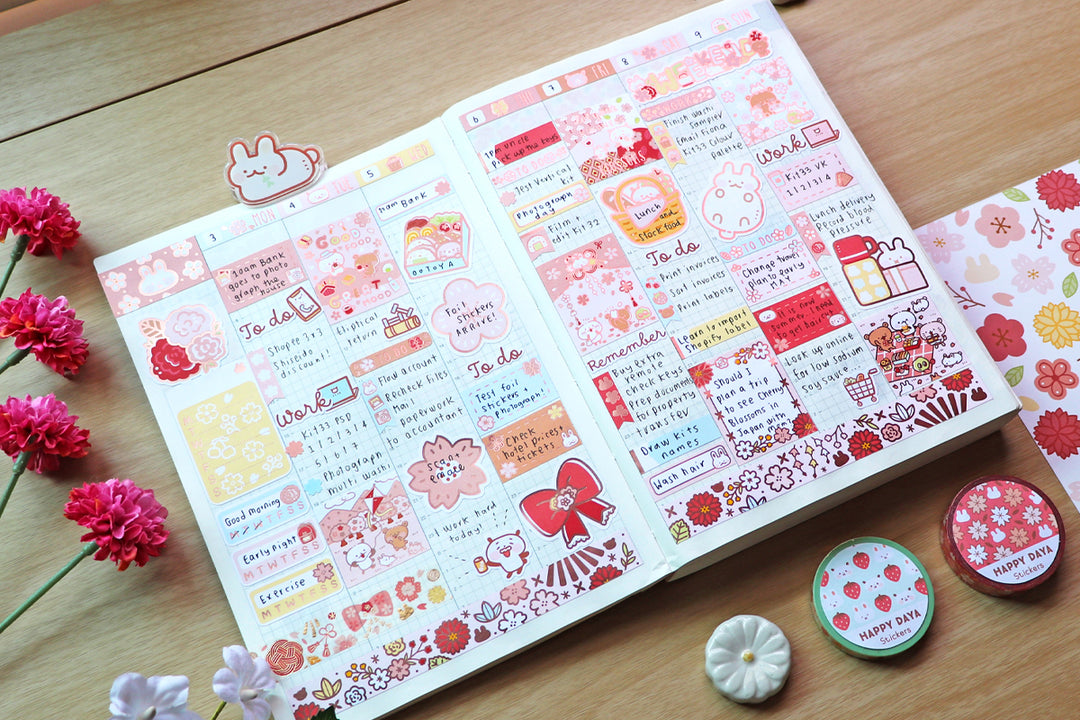 3
MON
4
TUE
5
WED
10am Bank
goes to photo
graph the
house
To do
Shopee 3x3
Shiseido
discount!
Work
Kit 33 PSD
1/2/3/4
5/6/7
Photograph
multi washi
Good morning
MTWTFSS
Early night
MTWTFSS
Exercise
MTWTFSS
GOOD
EAT
MOOD
Eliptical
return
TO DO
Flow account
Recheck files
Mail
paperwork
to accountant
Bank
OOTOYA
Foil
Stickers
ARRIVE!
To do
Test foil
stickers +
photograph!
Check
hotel prices +
tickets
I work hard
today!
6
7
FRI
8
SAT
9
SUN
1pm uncle
pick up the keys
TO DO
Test Vertical
kit
Photograph
day
Film +
edit Kit 32
Remember
Buy extra
remote
check keys
Prep document
for property
transfer
Draw kits
names
Wash hair
Lunch
and
stock food
To do
Print invoices
Sort invoices
Print labels
Learn to import
Shopify label!
Should I
plan a trip
to see Cherry
Blossoms in
Japan with
mom
WORK
Finish washi
Sampler
Email Fiona
Kit 33 Colour
palette
TO DO
Change travel
plan to early
MAY
It is now
summer. I need
to get haircut
Look up online
for low sodium
Soy sauce
Work
Kit 33 VK
1/2/3/4
Lunch delivery
Record blood
pressure
HAPPY DAYA
Stickers
HAPPY DAYA
Stickers